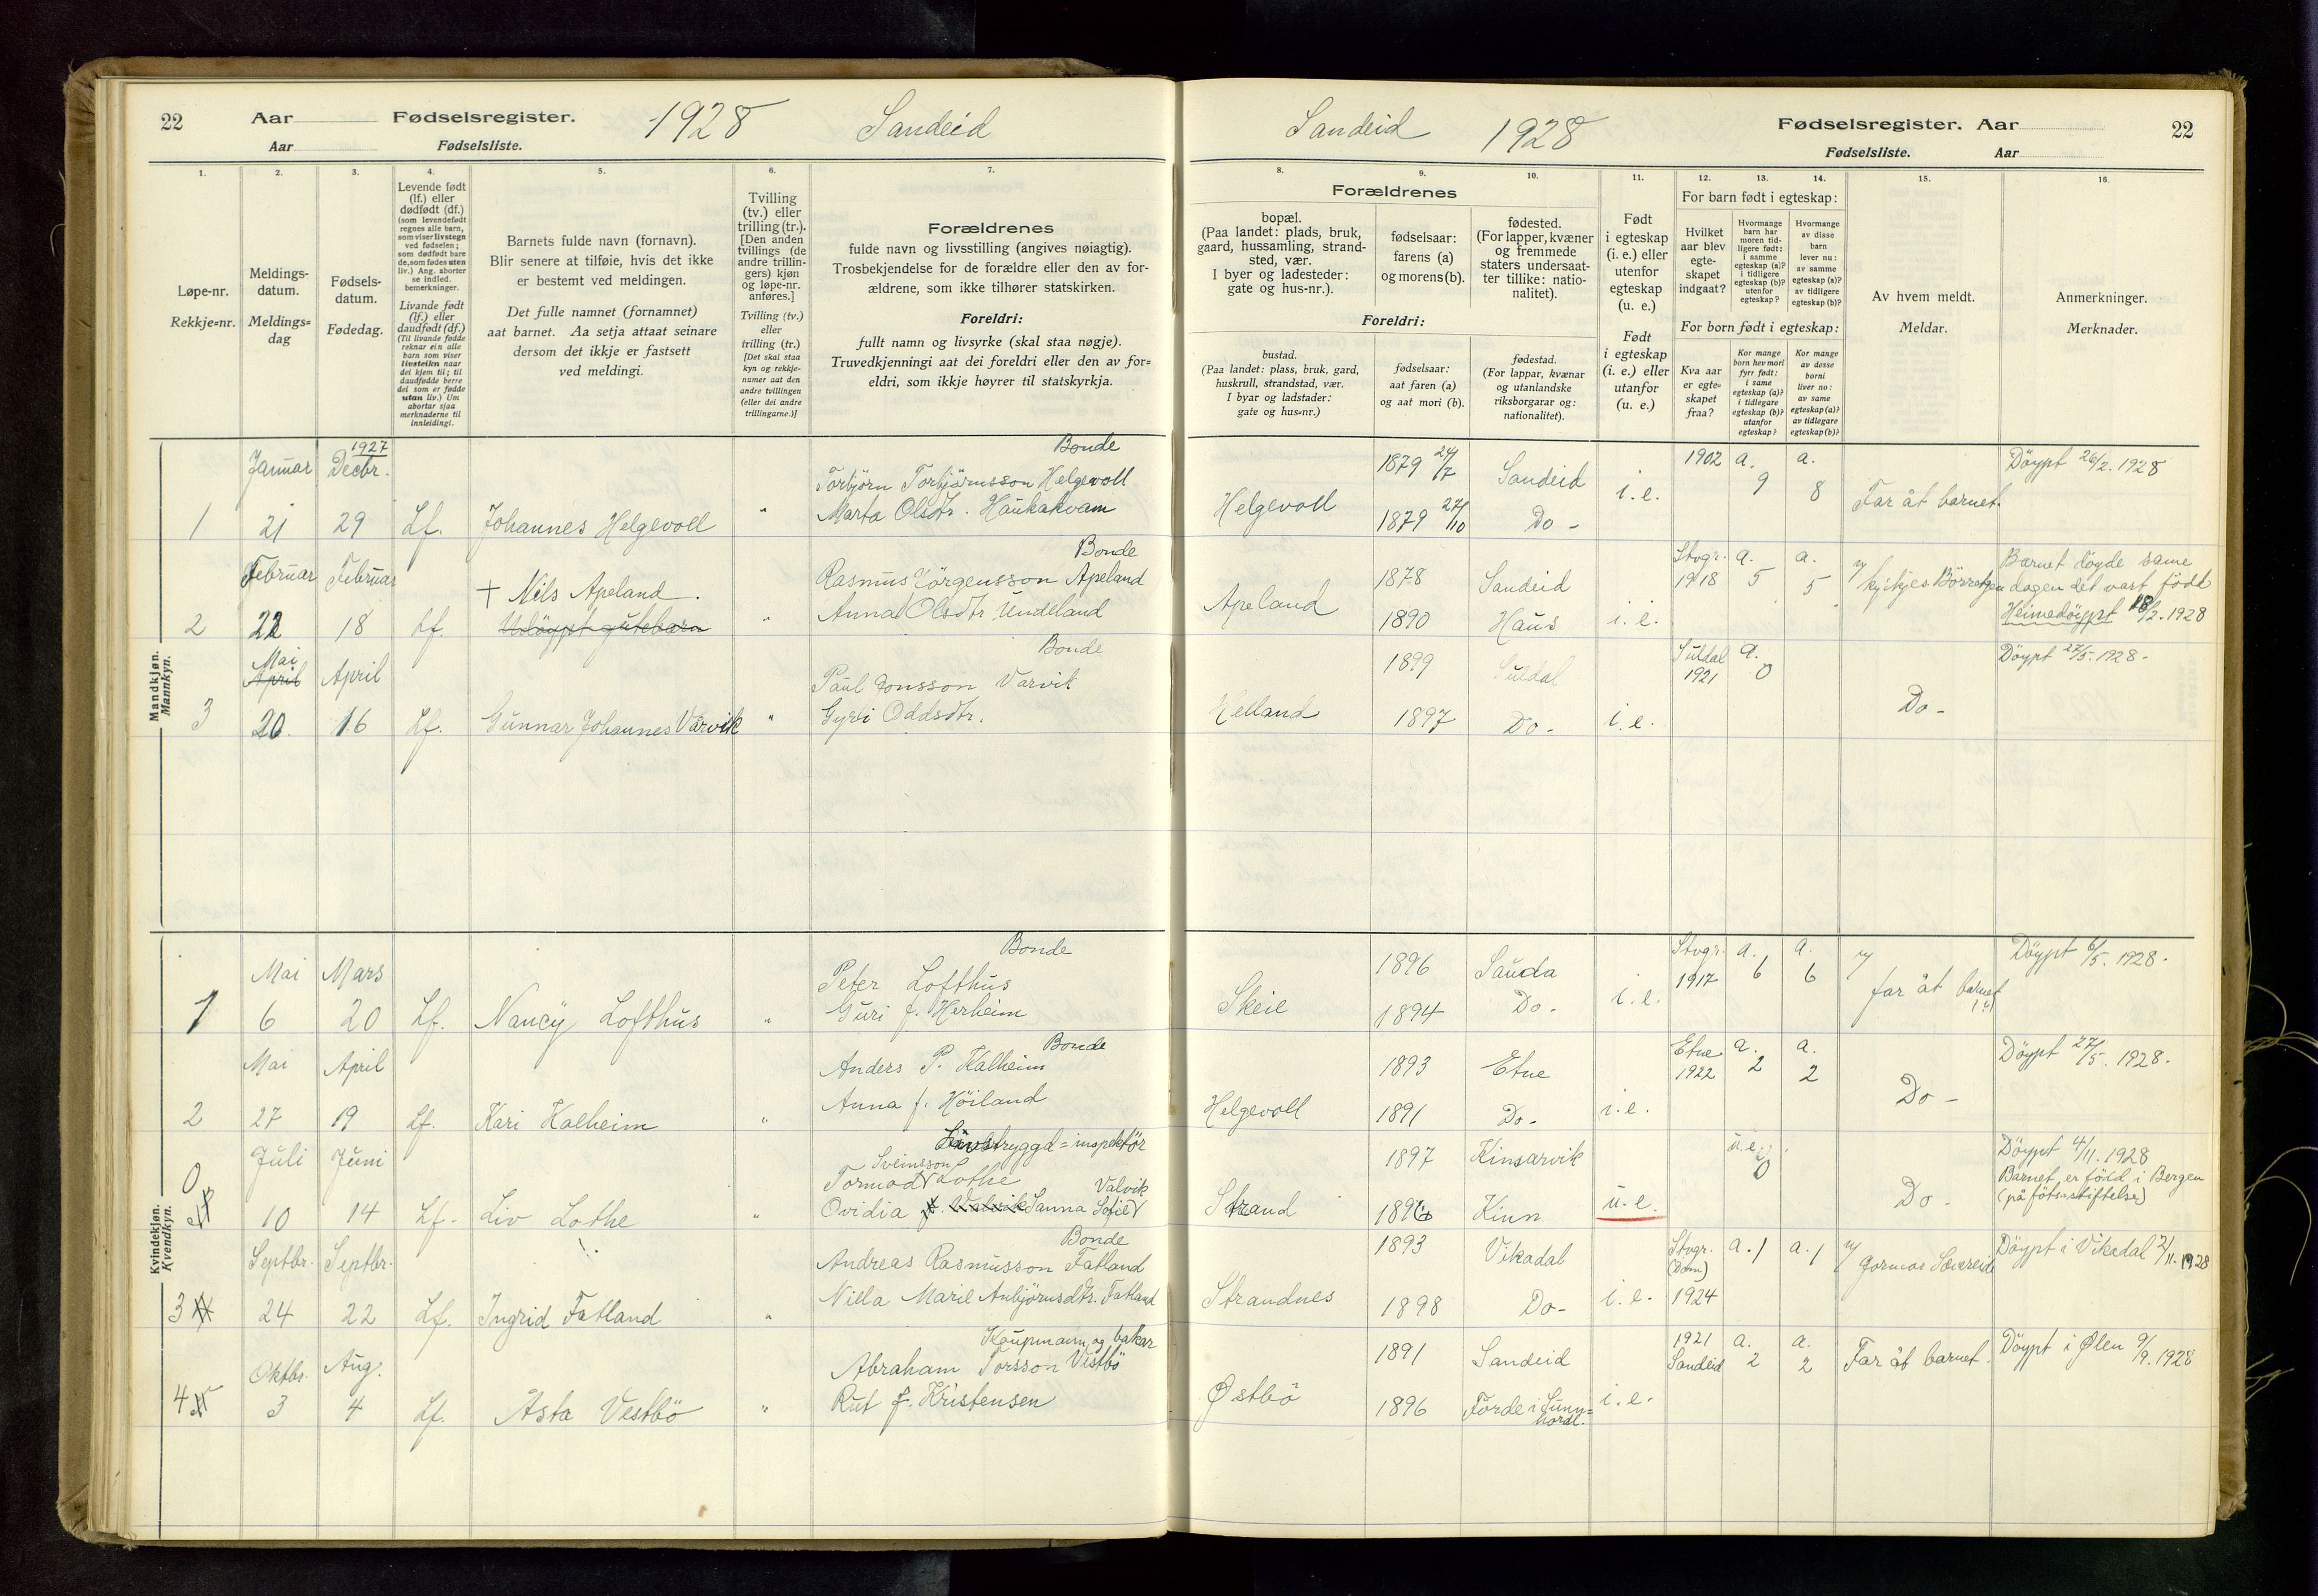 22 Aar Fødselsregister. 1928 Sandeid
Aar Fødselsliste.
1. 2. 3. 4. 5. 6. 7.
Løpe-nr.
Rekkje=nr.
Meldings-
datum.
Meldings=
dag
Fødsels-
datum.
Fødedag.
Levende født
(lf.) eller
dødfødt (df.)
(som levendefødt
regnes alle barn,
som viser livstegn
ved fødselen;
som dødfødt bare
de, som fødes uten
liv.) Ang. aborter
se indled.
bemerkninger.
Livande født
(lf.) eller
daudfødt (df.)
(Til livande fødde
reknar ein alle
barn som viser
livsteikn naar
dei kjem til; til
daudfødde berre
dei som er fødde
utan liv.) Um
abortar sjaa
merknaderne til
innleidingi.
Barnets fulde navn (fornavn).
Blir senere at tilføie, hvis det ikke
er bestemt ved meldingen.
Det fulle namnet (fornamnet)
aat barnet. Aa setja attaat seinare
dersom det ikkje er fastsett
ved meldingi.
Tvilling
(tv.) eller
trilling (tr.).
[Den anden
tvillings (de
andre trillin-
gers) kjøn
og løpe-nr.
anføres.]
Tvilling (tv.)
eller
trilling (tr.)
[Det skal staa
kyn og rekkje-
numer aat den
andre tvillingen
(eller dei andre
trillingarne.)]
Forældrenes
fulde navn og livsstilling (angives nøiagtig).
Trosbekjendelse for de forældre eller den av for-
ældrene, som ikke tilhører statskirken.
Foreldri:
fullt namn og livsyrke (skal staa nøgje).
Truvedkjenningi aat dei foreldri eller den av for=
eldri, som ikkje høyrer til statskyrkja.
Mandkjøn.
Mannkyn.
Januar 1927 Decbr. Bonde
Torbjörn Torbjörnsson Helgevoll
1 21 29 Lf. Johannes Helgevoll " Marta Olsdtr. Haukakvam
Februar Februar Bonde
† Nils Apeland. Rasmus Jörgensson Apeland
2 22 18 Lf. Udöypt gutebarn " Anna Olsdtr Undeland
Mai Bonde
April April Paul Jonsson Varvik
3 20. 16 Lf. Gunnar Johannes Varvik " Gyri Oddsdtr.
Kvindekjøn.
Kvendkyn.
Bonde
Mai Mars Peter Lofthus
1 6 20 Lf. Nancy Lofthus " Guri f. Herheim
Mai April Bonde
Anders P. Kalheim
2 27 19 Lf. Kari Kalheim " Anna f. Höiland
Livstryggd=inspektör
Juli Juni Sveinsson
0 Tormod Lothe Valvik
10 14 Lf. Liv Lothe " Ovidia f. Valvik Sanna Sofie
Septbr. Septbr. Bonde
Andreas Rasmusson Fatland
3 24 22 Lf. Ingrid Fatland " Niella Marie Anbjörnsdtr. Fatland
Kaupmann og bakar
Oktbr. Aug. Abraham Torsson Vestbö
4 3 4 Lf. Asta Vestbö " Rut f. Kristensen
Sandeid 1928 Fødselsregister. Aar 22
Fødselsliste. Aar
8. 9. 10. 11. 12. 13. 14. 15. 16.
Forældrenes
bopæl.
(Paa landet: plads, bruk,
gaard, hussamling, strand-
sted, vær.
I byer og ladesteder:
gate og hus-nr.).
fødselsaar:
farens (a)
og morens (b).
fødested.
(For lapper, kvæner
og fremmede
staters undersaat-
ter tillike: natio-
nalitet).
Foreldri:
bustad.
(Paa landet: plass, bruk, gard,
huskrull, strandstad, vær.
I byar og ladstader:
gate og hus=nr.)
fødselsaar:
aat faren (a)
og aat mori (b).
fødestad.
(For lappar, kvænar
og utanlandske
riksborgarar og:
nationalitet).
Født
i egteskap
(i. e.) eller
utenfor
egteskap
(u. e.)
Født
i egteskap
(i. e.) eller
utanfor
(u. e.)
For barn født i egteskap:
Hvilket
aar blev
egte-
skapet
indgaat?
Hvormange
barn har
moren tid-
ligere født:
i samme
egteskap (a)?
i tidligere
egteskap (b)?
utenfor
egteskap?
Hvormange
av disse
barn
lever nu:
av samme
egteskap (a)?
av tidligere
egteskap (b)?
For born født i egteskap:
Kva aar
er egte=
skapet
fraa?
Kor mange
born hev mori
fyrr født:
i same
egteskap (a)?
i tidlegare
egteskap (b)?
utanfor
egteskap?
Kor mange
av desse
borni
liver no:
av same
egteskap (a)?
av tidlegare
egteskap (b)?
Av hvem meldt.
Meldar.
Anmerkninger.
Merknader.
1879 24/7 Sandeid 1902 a. 9 a. 8 Döypt 26/2. 1928
Helgevoll i. e. Far åt barnet.
1879 27/10 Do -
1878 Sandeid Stvgr. 1918 a. 5 a. 5 Barnet döyde same
dagen det vart född
Apeland 1890 Haus i. e. Heimedöypt 18/2. 1928
1899 Suldal Suldal 1921 a. 0 Döypt 27/5. 1928.
Helland 1897 Do. i. e. Do -
1896 Sauda Stvgr. 1917 a. 6 a. 6 Döypt 6/5. 1928.
Skeie 1894 Do. i. e. far åt barnet
1893 Etne Etne 1922 a. 2 a. 2 Döypt 27/5. 1928.
Helgevoll 1891 Do. i. e. Do -
1897 Kinsarvik u. e. 0 Döypt 4/11. 1928
Barnet er född i Bergen
Strand 1896 Kinn u. e. Do - (på fötsstiftelse)
1893 Vikadal Stvgr. (Dom) 1924 a. 1 a. 1 Döypt i Vikadal 2/11. 1928
Strandnes 1898 Do- i. e.
1891 Sandeid 1921 Sandeid a. 2 a. 2 Far åt barnet. Döypt i Ølen 9/9. 1928
Østbö 1896 Förde i Sunn=
hordl. i. e.